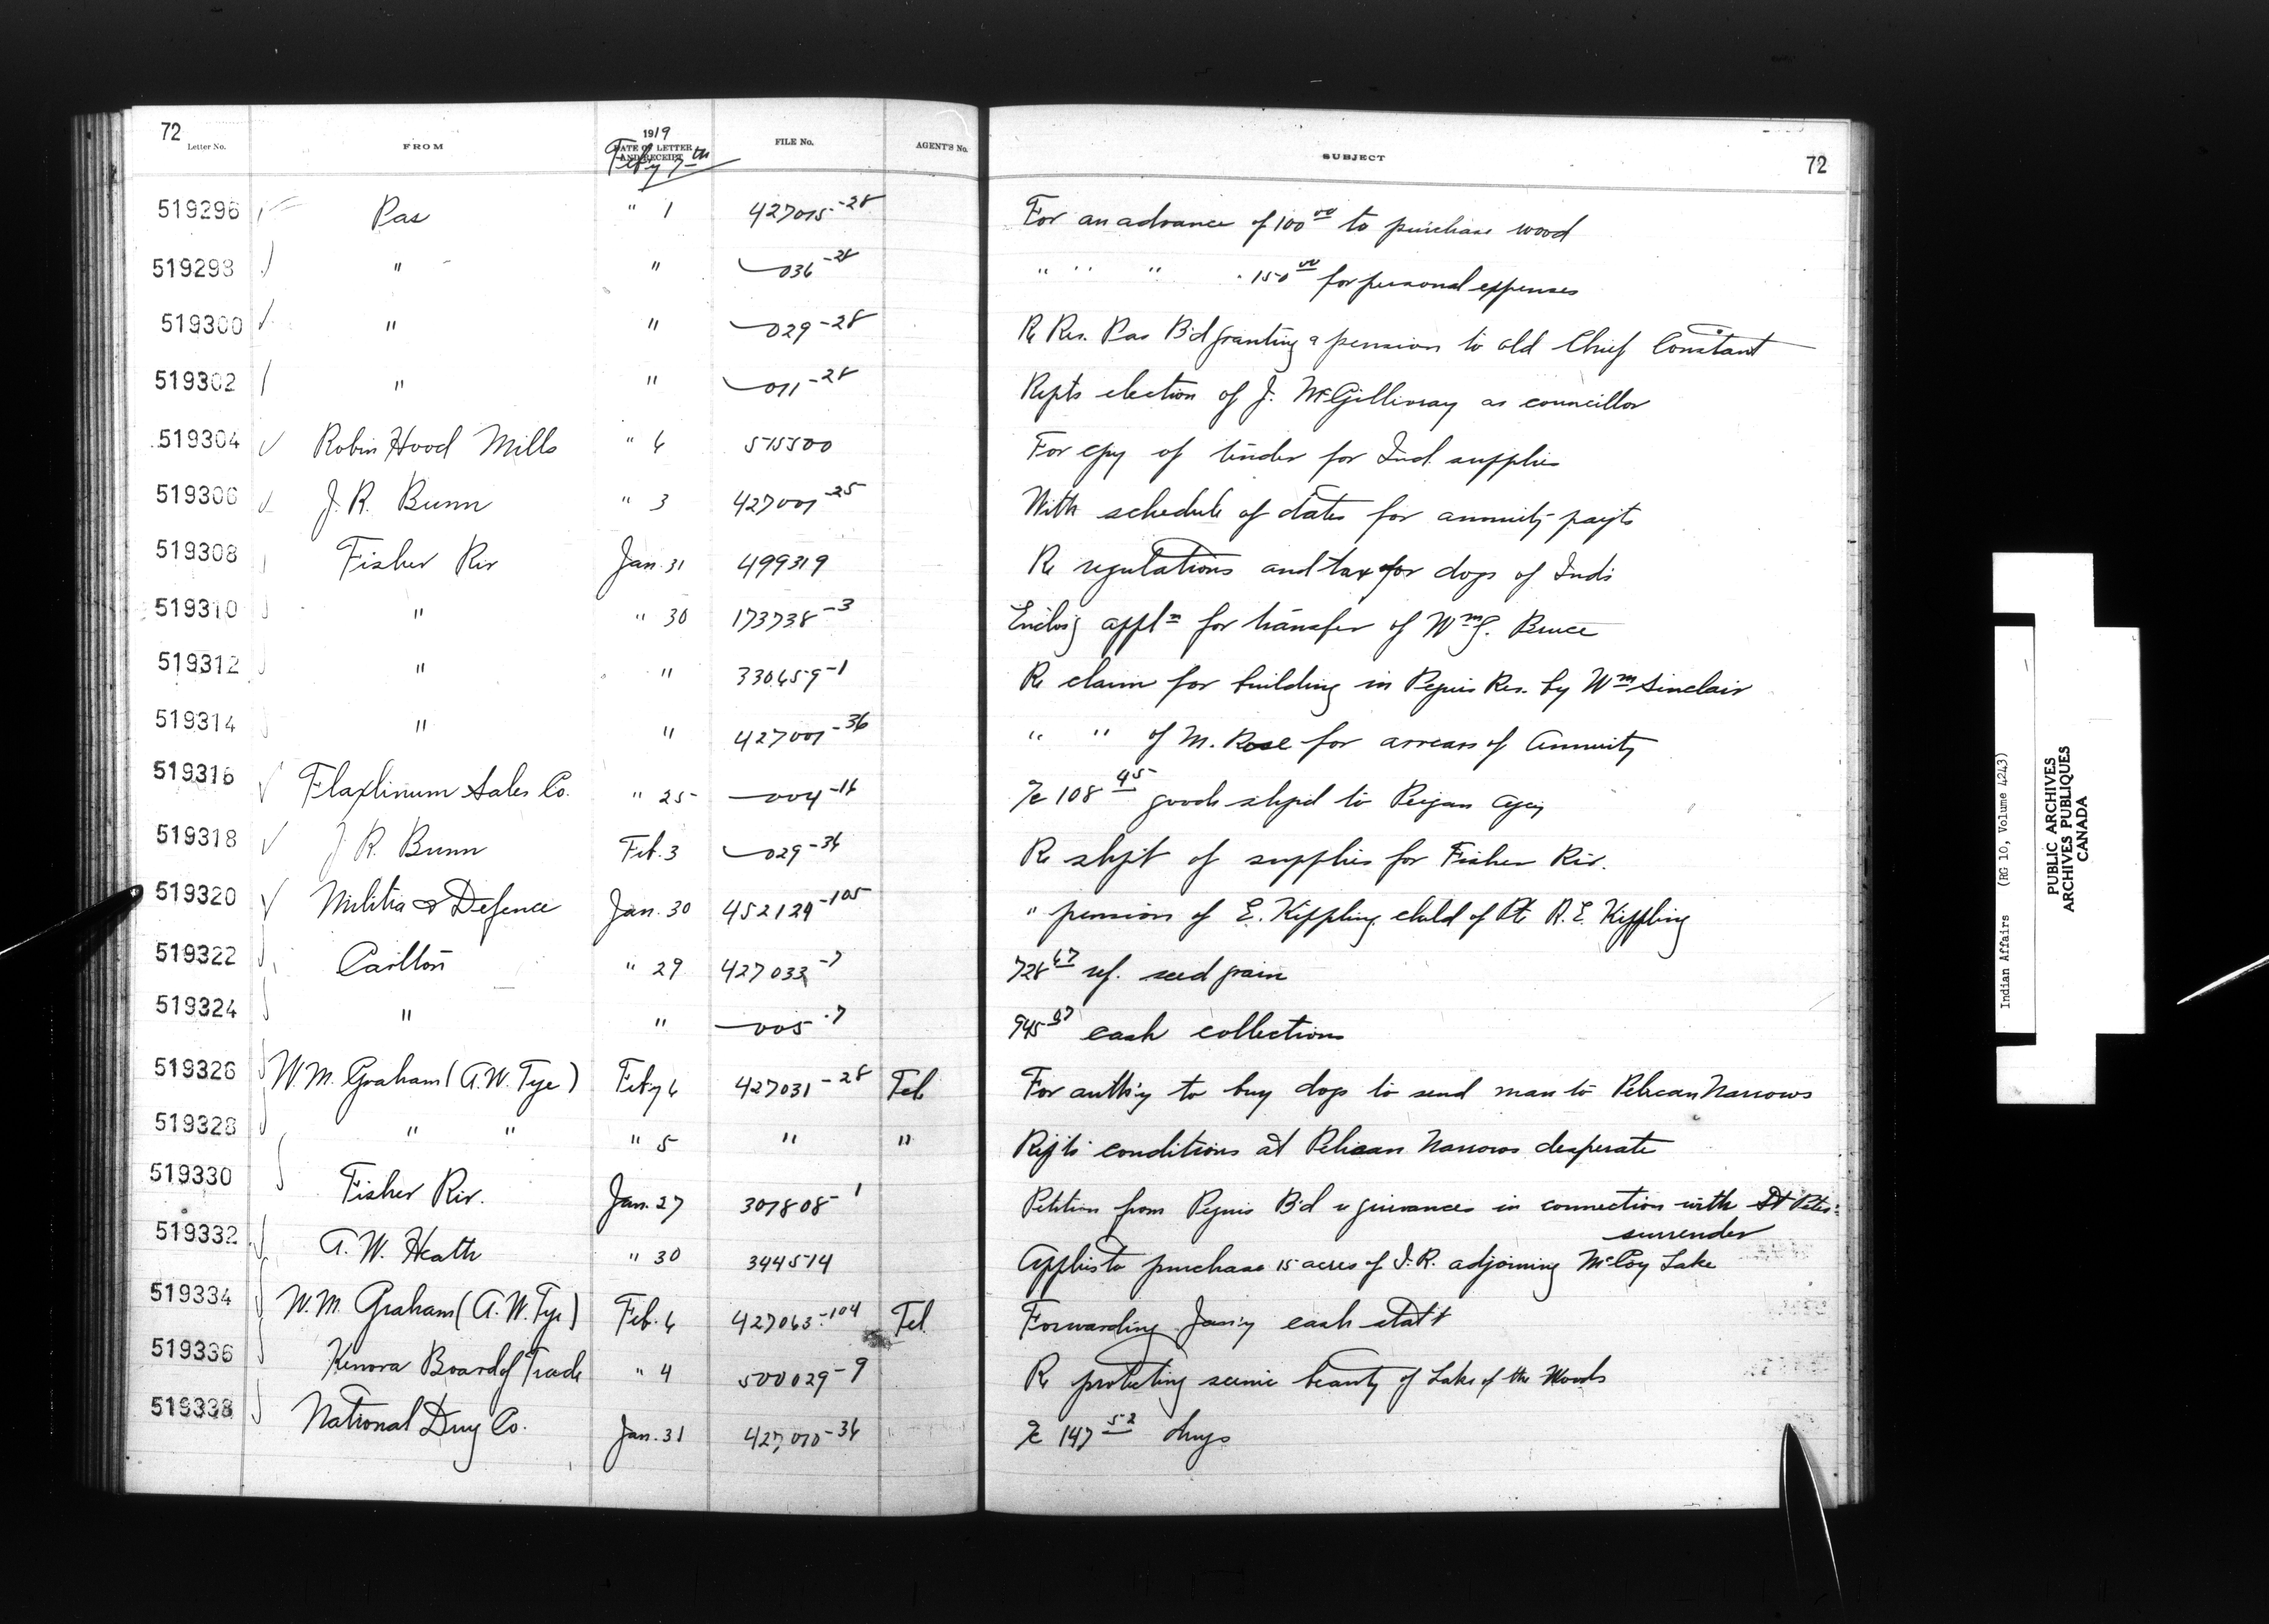 72 Letter No. FROM 1919 DATE OF LETTER AND RECEIPT FILE No. AGENT'S No. SUBJECT 72
Feby 7th
519296 Pas " 1 427015-28 For an advance of 100 00 to purchase wood
519298 " " 036-28 " " " " 150 00 for personal expenses
519300 " " 029-28 Re Res. Pas B'd granting a pension to old Chief Constant
519302 " " 011-28 Repts election of J. McGillivray as councillor
519304 Robin Hood Mills " 6 515500 For cpy of tender for Ind. supplies
519306 J. R. Bunn " 3 427001-25 With schedule of dates for annuity payts
519308 Fisher Riv Jan. 31 499319 Re regulations and tax for dogs of Inds
519310 " " 30 173738-3 Enclos'g appln for transfer of Wm J. Bruce
519312 " " 330659-1 Re claim for building in Peguis Res. by Wm Sinclair
519314 " " 427001-36 " " of M. Rose for arrears of Annuity
519316 Flaxlinum Sales Co. " 25 004-16 Ac 108 45 goods shipd to Peigan Agcy
519318 J. R. Bunn Feb. 3 029-36 Re shpt of supplies for Fisher Riv.
519320 Militia & Defence Jan. 30 452124-105 " pension of E. Kippling child of Pte R. E. Kippling
519322 Carlton " 29 427033-7 728 67 ref. seed grain
519324 " " 005-7 945 67 cash collections
519326 W. M. Graham (A. W. Tye) Feby 6 427031-28 Tel. For auth'y to buy dogs to send man to Pelican Narrows
519328 " " " 5 " " Rep'ts conditions at Pelican Narrows desperate
519330 Fisher Riv. Jan. 27 307808-1 Petition from Peguis B'd re grievances in connection with St Peters
surrender
519332 A. W. Heath " 30 344514 Applies to purchase 15 acres of I.R. adjoining McCoy Lake
519334 W. M. Graham (A. W. Tye) Feb. 6 427063-104 Tel. Forwarding Jan'y cash stat't
519336 Kenora Board of Trade " 4 500029-9 Re protecting scenic beauty of Lake of the Woods
519338 National Drug Co. Jan. 31 427010-36 Ac 147 52 drugs
Indian Affairs (RG 10, Volume 4243)
PUBLIC ARCHIVES
ARCHIVES PUBLIQUES
CANADA